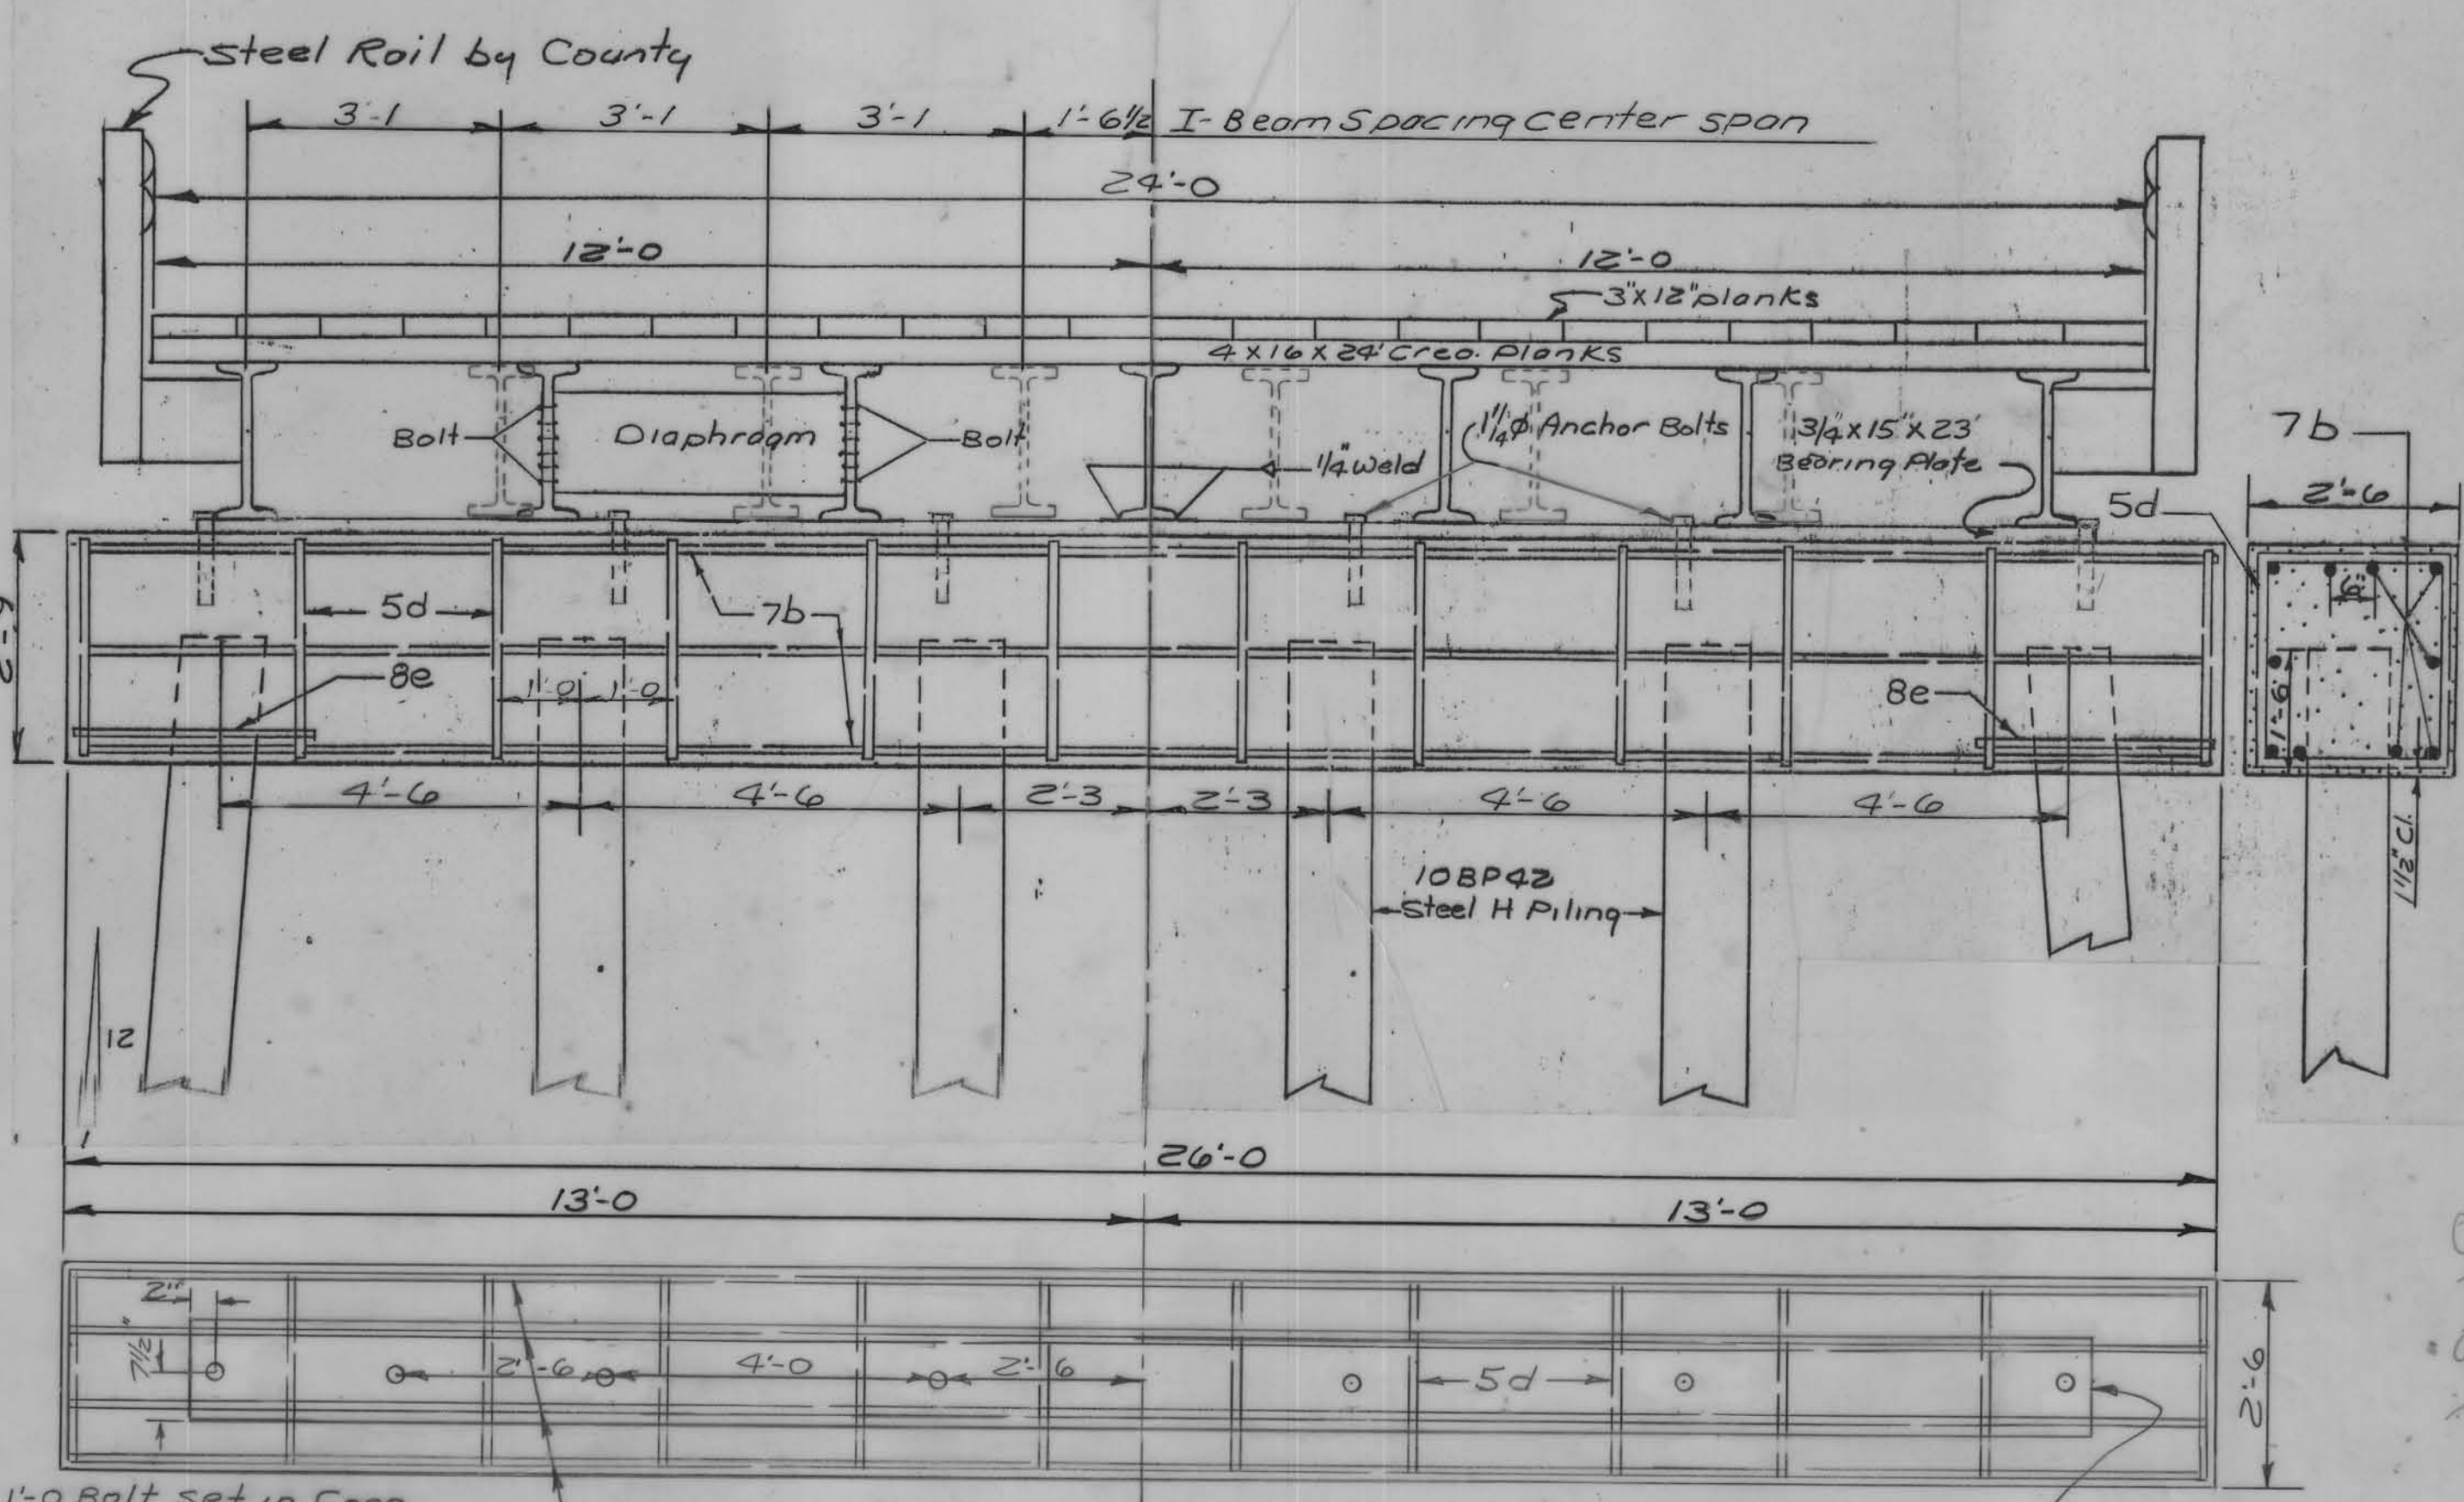 Steel Rail by County
3'-1 3'-1 3'-1 1'-6 1/2 I-Beam Spacing center span
24'-0
12'-0 12'-0
3"x12" planks
4 x 16 x 24' Creo. Planks
Bolt Diaphragm Bolt
1/4" Weld
1 1/4 φ Anchor Bolts
3/4" x 15" x 23'
Bearing Plate
7b
2'-6
5d
5d
7b
6"
8e
1'-0 1'-0
8e
1'-6
2'-9
4'-6 4'-6 2'-3 2'-3 4'-6 4'-6
1 1/2" Cl.
10BP42
Steel H Piling
12
1
26'-0
13'-0 13'-0
2"
7 1/2"
2'-6 4'-0 2'-6 5d
2'-6
1'-0 Bolt set in Conc.